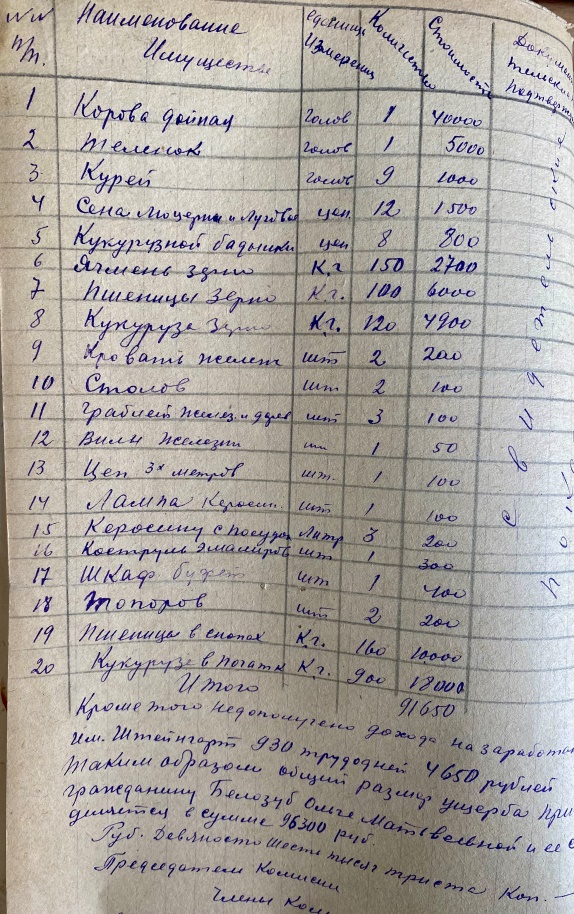 NN п/п. Наименование Имущества единица Измерения Количество Стоимость
1 Корова дойная голов 1 40000
2 Теленок голов 1 5000
3 Курей голов 9 1000
4 Сена Люцерны и Лугово цен 12 1500
5 Кукурузной бадылки цен 8 800
6 Ячмень зерно К.г 150 2700
7 Пшеницы Зерно К.г. 100 6000
8 Кукуруза Зерно К.г. 120 4900
9 Кровать железн шт 2 200
10 Столов шт 2 100
11 Граблей желез. и дерев шт 3 100
12 Вилы железн шт 1 50
13 Цеп 3х метров шт. 1 100
14 Лампа Керосин. шт 1 100
15 Керосину с посудой Литр 3 200
16 Кострюль эмалиров шт 1 300
17 Шкаф буфет шт 1 400
18 Топоров шт 2 200
19 Пшеницы в снопах К.г. 160 10000
20 Кукуруза в початк К.г. 900 18000
Итого 91650
Кроме того недополучено дохода на заработан
им. Штейнгарт 930 трудодней 4650 рублей
Таким образом общий размер ущерба при
гражданину Белозуб Ольге Матвеевной и ее с
деляется в сумме 96300 руб.
Руб. Девяносто шесть тысяч триста Коп. —
Председатель Комиссии
Члены Ком
Свидетели